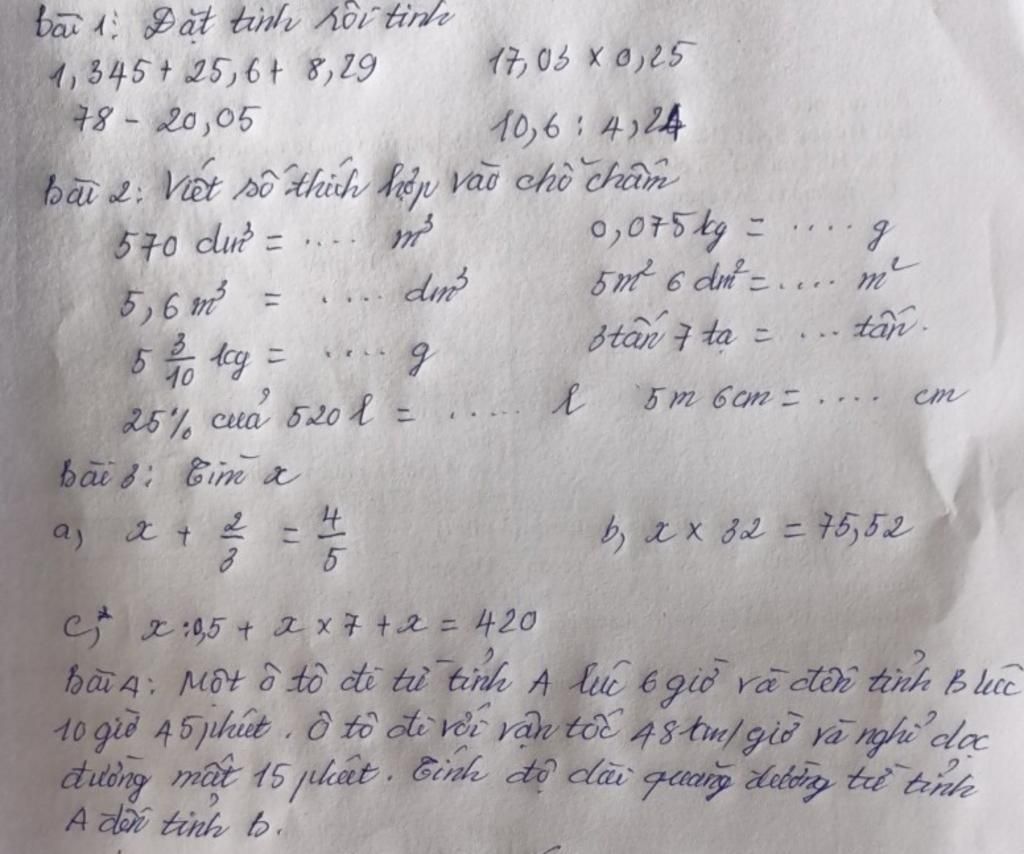 Bài 1: Đặt tính rồi tính
1,345 + 25,6 + 8,29 17,03 x 0,25
78 - 20,05 10,6 : 4,24
Bài 2: Viết số thích hợp vào chỗ chấm
570 dm³ = .... m³ 0,075 kg = .... g
5,6 m³ = .... dm³ 5m² 6 dm² = .... m²
5 3/10 kg = .... g 3 tấn 7 tạ = ... tấn.
25% của 520 l = ..... l 5m 6cm = .... cm
Bài 3: Tìm x
a, x + 2/3 = 4/5 b, x x 32 = 75,52
c,* x : 0,5 + x x 7 + x = 420
Bài 4: Một ô tô đi từ tỉnh A lúc 6 giờ và đến tỉnh B lúc
10 giờ 45 phút. Ô tô đi với vận tốc 48 km/giờ và nghỉ dọc
đường mất 15 phút. Tính độ dài quãng đường từ tỉnh
A đến tỉnh B.